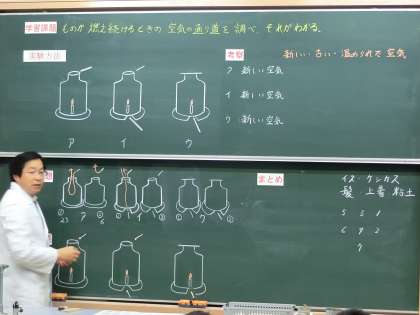 学習課題 ものが燃え続けるときの空気の通り道を調べ、それがわかる。
実験方法
考察
新しい・古い・温められた空気
ア 新しい空気
イ 新しい空気
ウ 新しい空気
ア イ ウ
まとめ
ア イ ウ
髪 上着 粘土
5 5 1
6 9 2
7